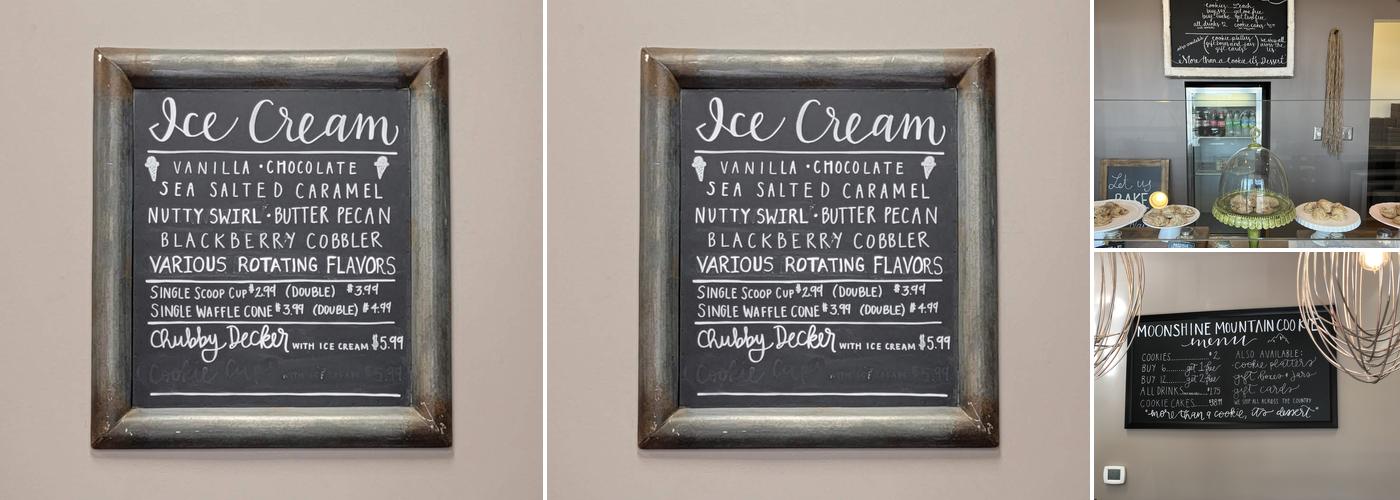 Ice Cream
VANILLA • CHOCOLATE
SEA SALTED CARAMEL
NUTTY SWIRL • BUTTER PECAN
BLACKBERRY COBBLER
VARIOUS ROTATING FLAVORS
SINGLE SCOOP CUP $2.99 (DOUBLE) $3.99
SINGLE WAFFLE CONE $3.99 (DOUBLE) $4.99
Chubby Decker WITH ICE CREAM $5.99
Cookie Cups WITH ICE CREAM $5.99
Ice Cream
VANILLA • CHOCOLATE
SEA SALTED CARAMEL
NUTTY SWIRL • BUTTER PECAN
BLACKBERRY COBBLER
VARIOUS ROTATING FLAVORS
SINGLE SCOOP CUP $2.99 (DOUBLE) $3.99
SINGLE WAFFLE CONE $3.99 (DOUBLE) $4.99
Chubby Decker WITH ICE CREAM $5.99
Cookie Cups WITH ICE CREAM $5.99
cookies
all drinks $2 cookie cakes
cookie platters
gift boxes and jars
gift cards
we ship all
across the
"More than a Cookie it's Dessert"
Let us
BAKE
MOONSHINE MOUNTAIN COOKIE
menu
COOKIES $2
BUY 6 get 1 free
BUY 12 get 2 free
ALL DRINKS $1.75
COOKIE CAKES
ALSO AVAILABLE:
cookie platters
gift boxes + jars
gift cards
WE SHIP ALL ACROSS THE COUNTRY
"more than a cookie, it's dessert"